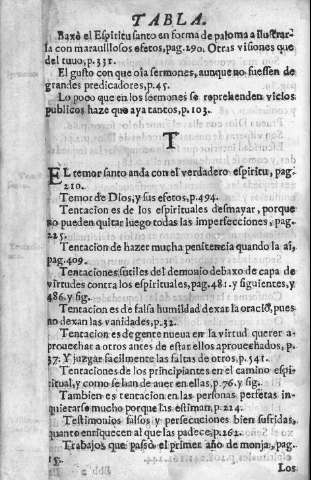 TABLA.
Baxò el Espiritu santo en forma de paloma a ilustrar
la con marauillosos efetos, pag. 290. Otras visiones que
del tuuo, p. 331.
El gusto con que oìa sermones, aunque no fuessen de
grandes predicadores, p. 45.
Lo poco que en los sermones se reprehenden vicios
publicos haze que aya tantos, p. 103.
T
EL temor santo anda con el verdadero espiritu, pag.
210.
Temor de Dios, y sus efetos, p. 494.
Tentacion es de los espirituales desmayar, porque
no pueden quitar luego todas las imperfecciones, pag.
225.
Tentacion de hazer mucha penitencia quando la ai,
pag. 409.
Tentaciones sutiles del demonio debaxo de capa de
virtudes contra los espirituales, pag. 481. y siguientes, y
486. y sig.
Tentacion es de falsa humildad dexar la oraciõ, pues
no dexan las vanidades, p. 32.
Tentacion es de gente nueua en la virtud querer a-
prouechar a otros antes de estar ellos aprouechados, p.
37. Y juzgar facilmente las faltas de otros, p. 541.
Tentaciones de los principiantes en el camino espi-
ritual, y como se han de auer en ellas, p. 76. y sig.
Tambien es tentacion en las personas perfetas in-
quietarse mucho porque las estiman, p. 224.
Testimonios falsos y persecuciones bien sufridas,
quanto enriquecen al que las padece, p. 262.
Trabajos que passò el primer año de monja, pag.
15.
Los